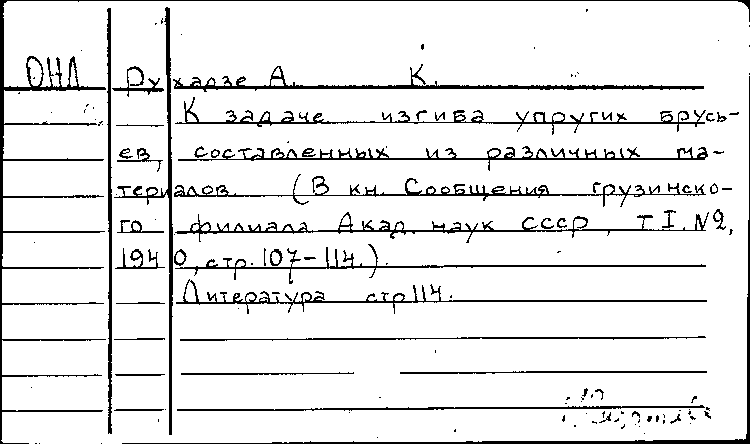 ОНЛ Рухадзе, А. К.
К задаче изгиба упругих брусь-
ев, составленных из различных ма-
териалов. (В кн. Сообщения грузинско-
го филиала Акад. наук СССР, Т I. №2,
1940, стр. 107-114.).
Литература стр 114.